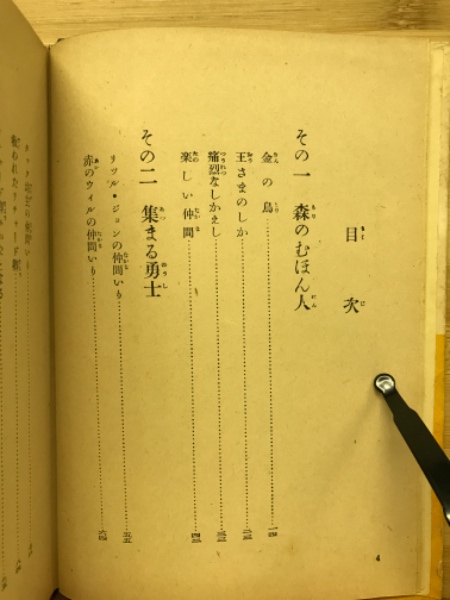 目次
その一 森のむほん人
金の鳥 一四
王さまのしか 二三
痛烈なしかえし 三三
楽しい仲間 四三
その二 集まる勇士
リツル・ジョンの仲間いり 五五
赤のウィルの仲間いり 六四
4